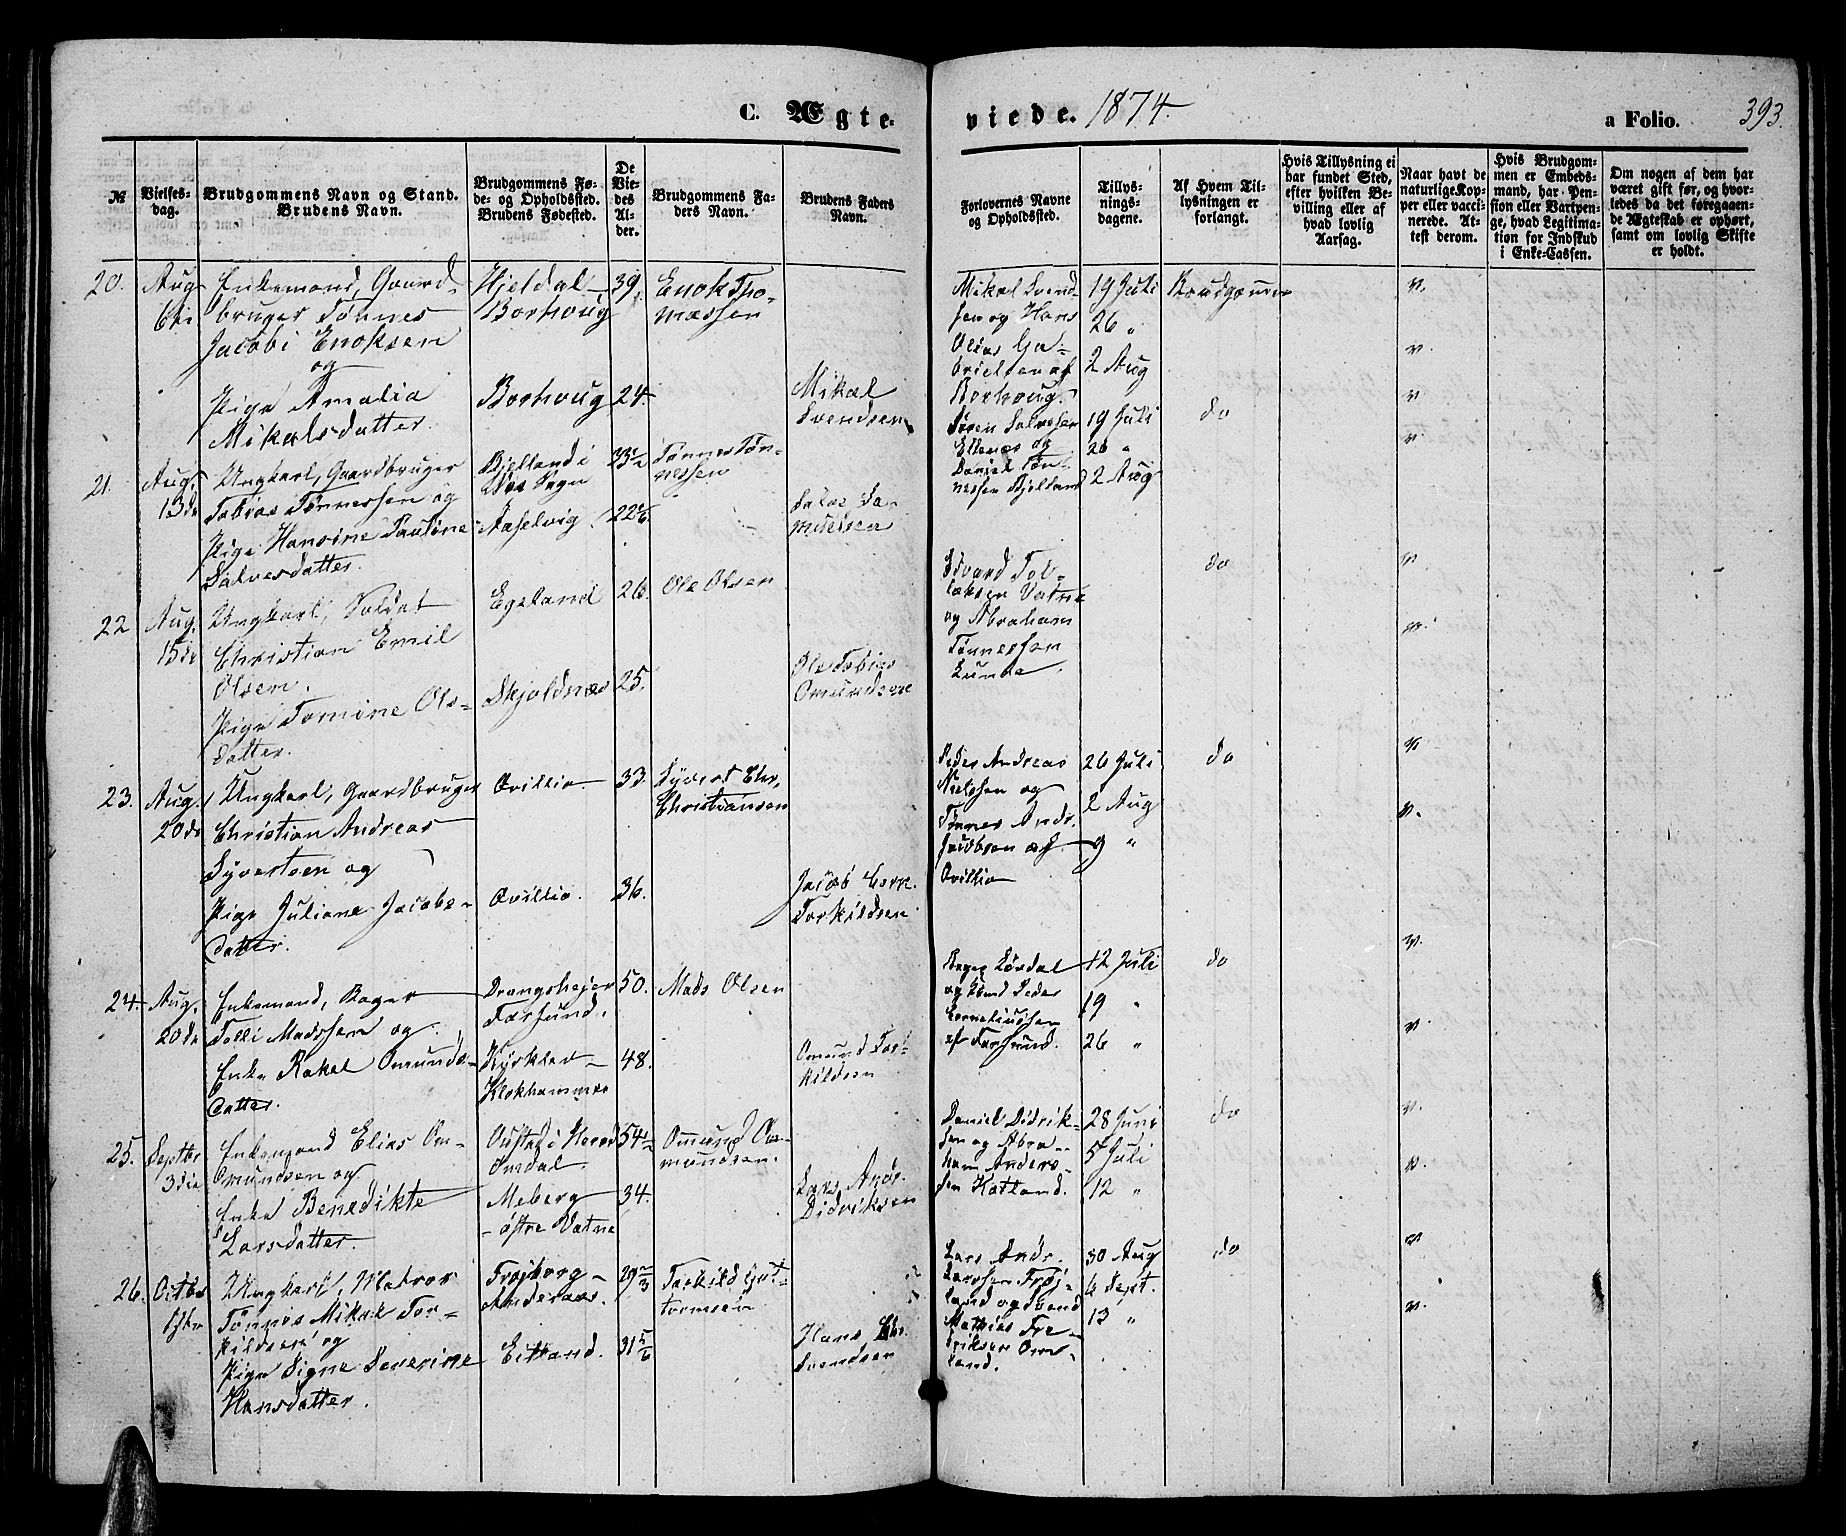 C. Ægte-
viede. 1874.
a Folio. 393.
№
Vielses-
dag.
Brudgommens Navn og Stand.
Brudens Navn.
Brudgommens Fø-
de- og Opholdssted.
Brudens Fødested.
De
Vie-
des
Al-
der.
Brudgommens Fa-
ders Navn.
Brudens Faders
Navn.
Forlovernes Navne
og Opholdssted.
Tillys-
nings-
dagene.
Af Hvem Til-
lysningen er
forlangt.
Hvis Tillysning ei
har fundet Sted,
efter hvilken Be-
villing eller af
hvad lovlig
Aarsag.
Naar havt de
naturlige Kop-
per eller vacci-
nerede. At-
test derom.
Hvis Brudgom-
men er Embeds-
mand, har Pen-
sion eller Vartpen-
ge, hvad Legitima-
tion for Indskud
i Enke-Cassen.
Om nogen af dem har
været gift før, og hvor-
ledes da det foregaaen-
de Ægteskab er ophørt,
samt om lovlig Skifte
er holdt.
20.
Aug
6te
Enkemand, Gaard-
bruger Tønnes
Jacobi Enoksen
og
Pige Amalia
Mikalsdatter.
Hjeldal-
Borhoug
Borhoug
39
24.
Enok Tho-
massen
Mikal
Svendsen
Mikal Svend-
sen og Hans
Olias Ga-
brielsen af
Borhoug.
19 Juli
26 "
2 Aug
Brudgommen
v.
v.
21.
Aug.
13de
Ungkarl, Gaardbruger
Tobias Tønnessen og
Pige Hansine Pauline
Salvesdatter.
Bjelland i
Aaselvig.
33½
22
Tønnes Tøn-
nessen
Salve Sa-
muelsen
Søren Salvesen
Ellenes og
Daniel Tøn-
nessen Bjelland
19 Juli
26 "
2 Aug
do
v
v.
22
Aug.
15de
Ungkarl, Soldat
Christian Emil
Olsen.
Pige Tomine Ols-
datter.
Egeland
Skjoldnæs
26.
25.
Ole Olsen
Ole Tobias
Omundsen
Edvard Tol-
laksen Vatne
og Abraham
Tønnessen
Lunde.
do
v.
v.
23.
Aug.
20de
Ungkarl, Gaardbruger
Christian Andreas
Syvertsen og
Pige Juliane Jacobs-
datter.
Ovillio
Ovillio.
33.
36.
Syvert Chr.
Christiansen
Jacob Corn.
Torkildsen
Peder Andreas
Nielsen og
Tønnes Andr.
Jacobsen af
Ovillio
26 Juli
2 Aug
9 "
do
v.
v.
24.
Aug.
20de
Enkemand, Bager
Tolli Madssen og
Enke Rakel Omunds-
datter.
Drangshejen
Farsund.
Kjørkleo-
Klokhammer
50.
48.
Mads Olsen
Omund Tor-
kildsen
Bager Lørdal
Peder
Corneliussen
af Farsund.
12 Juli
19 "
26 "
do
v.
v.
25.
Septbr
3die
Enkemand Elias Om-
Omundsen og
Enke Benedikte
Larsdatter.
Oustad i Hered
Omdal.
Meberg
-østre Vatne
54½
34.
Ommund Om-
mundsen.
Lars Andr.
Didriksen
Daniel Didrik-
sen og Abra-
ham Anders-
sen Hatland.
28 Juni
5 Juli
12 "
do
v.
v.
26.
Octbr
1ste
Ungkarl, Matros
Tønnes Mikal Tor-
kildsen og
Pige Signe Severine
Hansdatter.
Frøjborg-
Eitland.
29⅔
31 5/6
Torkild Gut-
tormsen
Hans Chr.
Svendsen
Lars Andr.
Larssen Frøj-
land og Svend
Mathias Fre-
driksen Om-
land.
30 Aug
6 Sept.
13 "
do
v.
v.